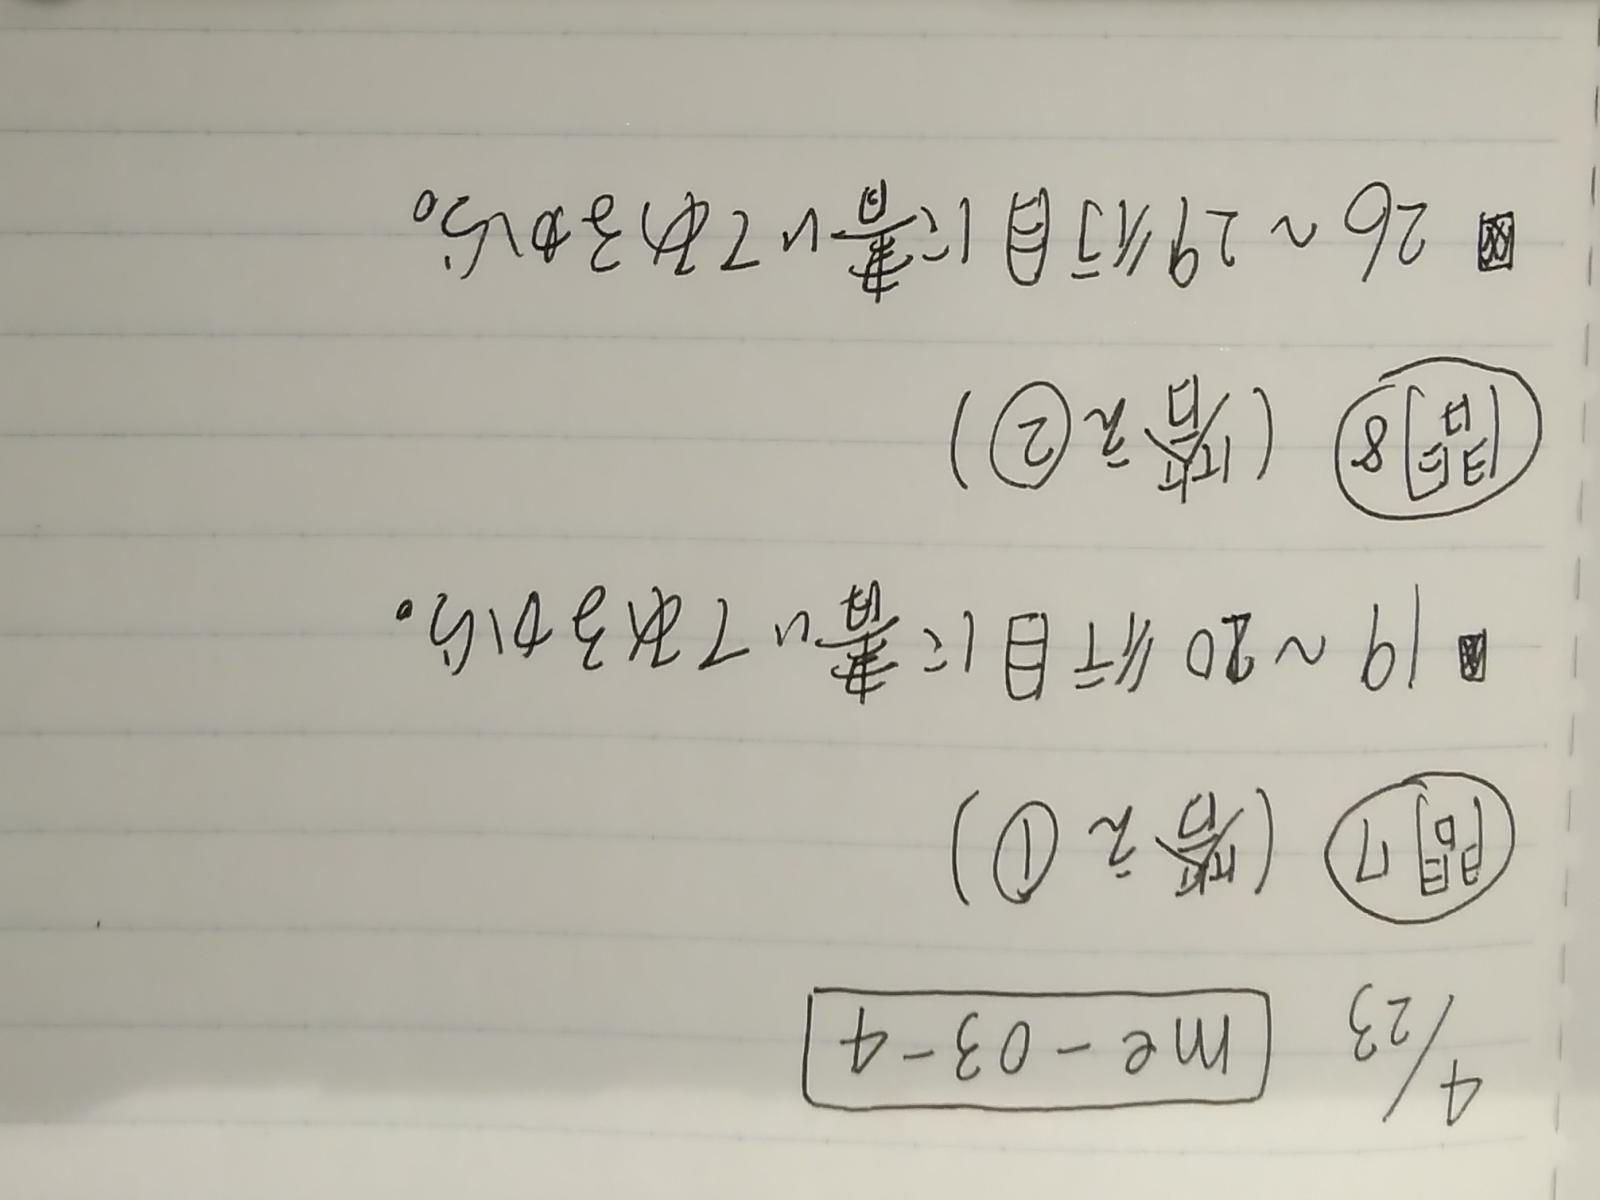 4/23 me-03-4
問7 (答え ①)
■ 19~20行目に書いてあるから。
問8 (答え ②)
■ 26~29行目に書いてあるから。